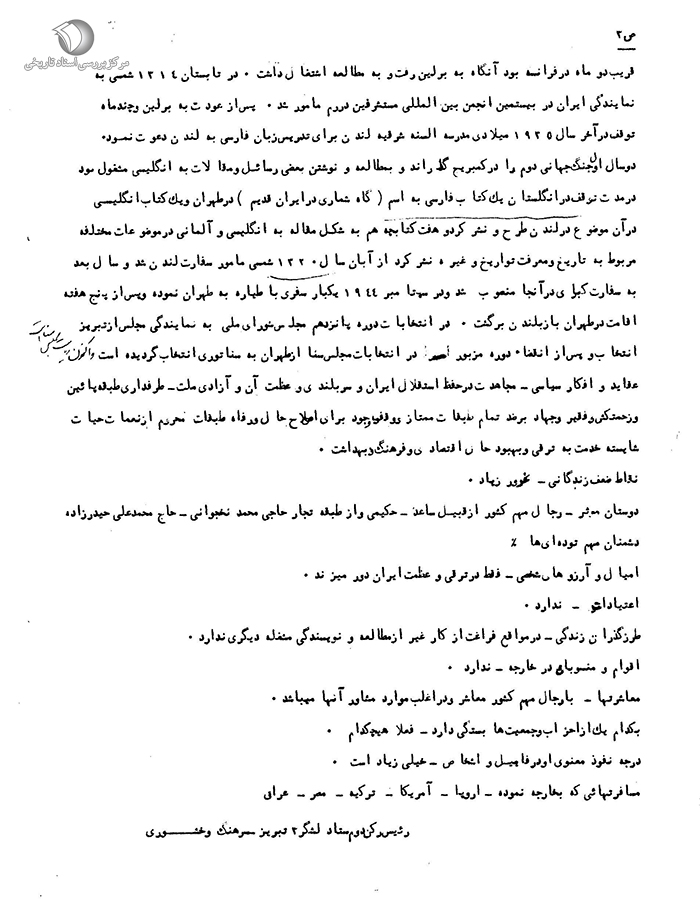 مرکز بررسی اسناد تاریخی
ص۲
قریب دو ماه در فرانسه بود آنگاه به برلین رفت و به مطالعه اشتغال داشت ۰ در تابستان ۱۳۱۴ شمسی به
نمایندگی ایران در بیستمین انجمن بین المللی مستشرقین در رم مامور شد ۰ پس از عودت به برلین و چند ماه
توقف در آخر سال ۱۹۳۵ میلادی مدرسه السنه شرقیه لندن برای تدریس زبان فارسی به لندن دعوت نمود۰
دو سال اول جنگ جهانی دوم را در کمبریج گذراند و بمطالعه و نوشتن بعضی رسائل و مقالات به انگلیسی مشغول بود
در مدت توقف در انگلستان یک کتاب فارسی به اسم ( گاه شماری در ایران قدیم ) در طهران و یک کتاب انگلیسی
در آن موضوع در لندن طرح و نشر کرد و هفت کتابچه هم به شکل مقاله به انگلیسی و آلمانی در موضوعات مختلفه
مربوط به تاریخ و معرفت تواریخ و غیره نشر کرد از آبان سال ۱۳۲۰ شمسی مامور سفارت لندن شد و سال بعد
به سفارت کبرای در آنجا منصوب شد و در سپتامبر ۱۹۴۴ یکبار سفری با طیاره به طهران نموده و پس از پنج هفته
اقامت در طهران باز بلندن برگشت ۰ در انتخابات دوره پانزدهم مجلس شورای ملی به نمایندگی مجلس از تبریز
انتخاب و پس از انقضاء دوره مزبور در انتخابات مجلس سنا از طهران به سناتوری انتخاب گردیده است واکنون
عقاید و افکار سیاسی ـ مجاهدت در حفظ استقلال ایران و سربلندی و عظمت آن و آزادی ملت ـ طرفداری طبقه پائین
و زحمتکش و فقیر و جهاد برضد تمام طبقات ممتاز برای اصلاح حال و رفاه طبقات محروم از نعمات حیات
شایسته خدمت به ترقی و بهبود حال اقتصادی و فرهنگ و بهداشت ۰
نقاط ضعف زندگانی ـ زیاد ۰
دوستان موثر ـ رجال مهم کشور از قبیل ساعد ـ حکیمی و از طبقه تجار حاجی محمد نخجوانی ـ حاج محمدعلی حیدرزاده
دشمنان مهم توده ای ها ٪
امیال و آرزوهای شخصی ـ فقط در ترقی و عظمت ایران دور میزند ۰
اعتیادات ـ ندارد ۰
طرز گذران زندگی ـ در مواقع فراغت از کار غیر از مطالعه و نویسندگی مشغله دیگری ندارد ۰
اقوام و منسوبان در خارجه ـ ندارد ۰
معاشرتها ـ با رجال مهم کشور معاشر و در اغلب موارد مشاور آنها میباشد ۰
بکدام یک از احزاب و جمعیت ها بستگی دارد ـ فعلا هیچکدام ۰
درجه نفوذ معنوی او در فامیل و اشخاص ـ خیلی زیاد است ۰
مسافرتهائی که بخارجه نموده ـ اروپا ـ آمریکا ـ ترکیه ـ مصر ـ عراق
رئیس رکن دوم ستاد لشگر ۳ تبریز ـ سرهنگ وخشوری